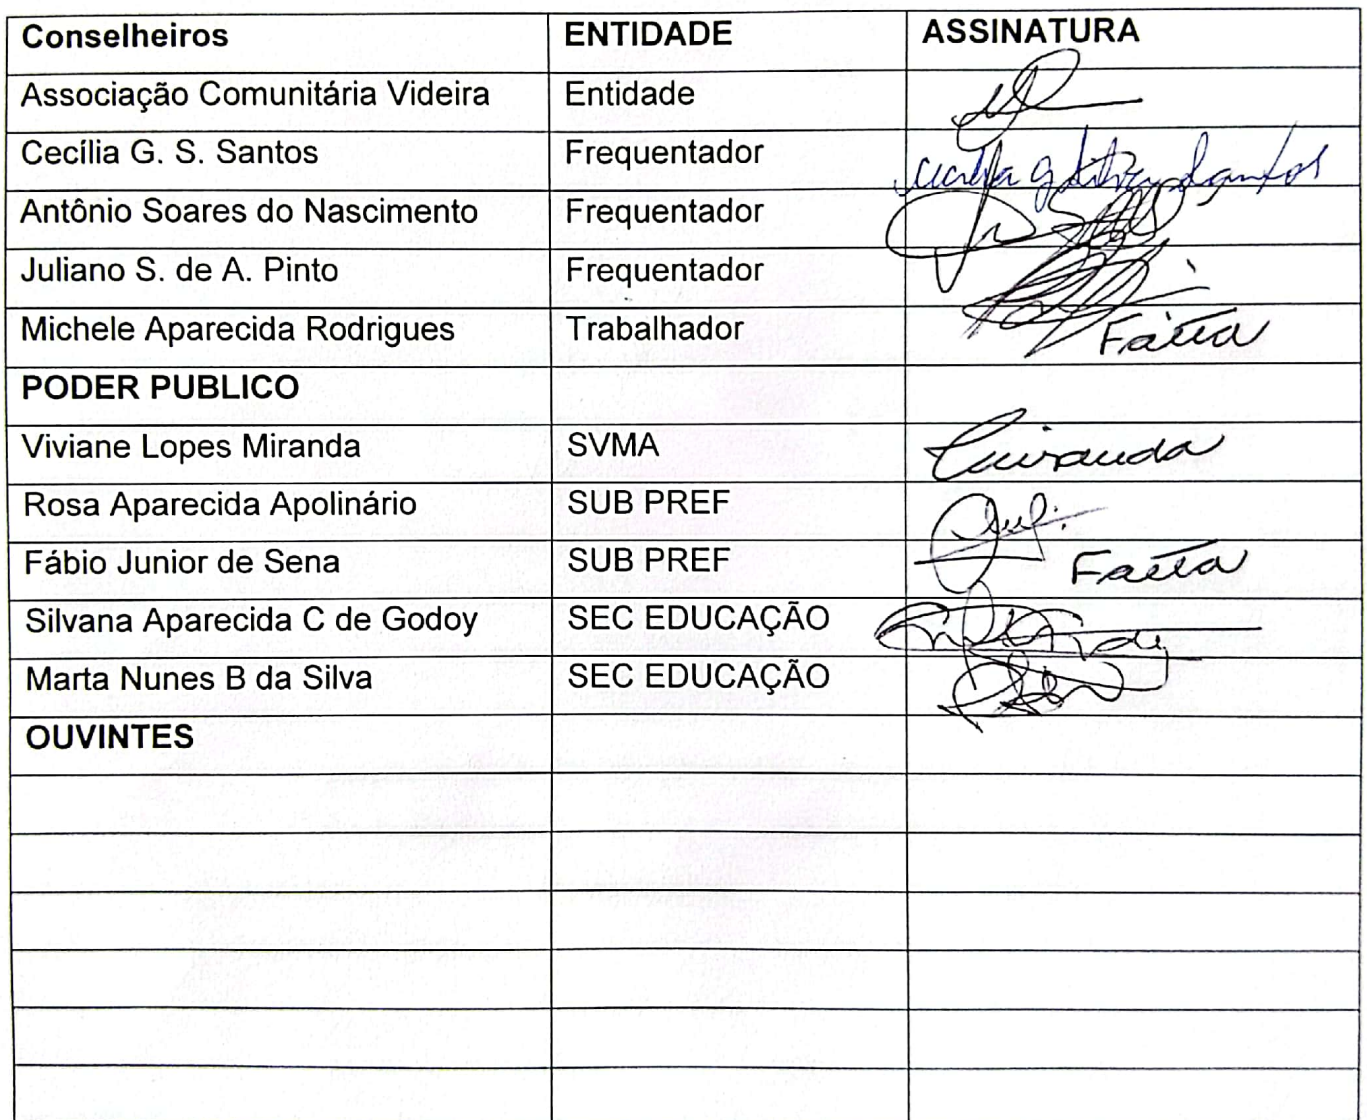 Conselheiros ENTIDADE ASSINATURA
Associação Comunitária Videira Entidade
Cecília G. S. Santos Frequentador
Antônio Soares do Nascimento Frequentador
Juliano S. de A. Pinto Frequentador
Michele Aparecida Rodrigues Trabalhador Falta
PODER PUBLICO
Viviane Lopes Miranda SVMA Miranda
Rosa Aparecida Apolinário SUB PREF
Fábio Junior de Sena SUB PREF Falta
Silvana Aparecida C de Godoy SEC EDUCAÇÃO
Marta Nunes B da Silva SEC EDUCAÇÃO
OUVINTES